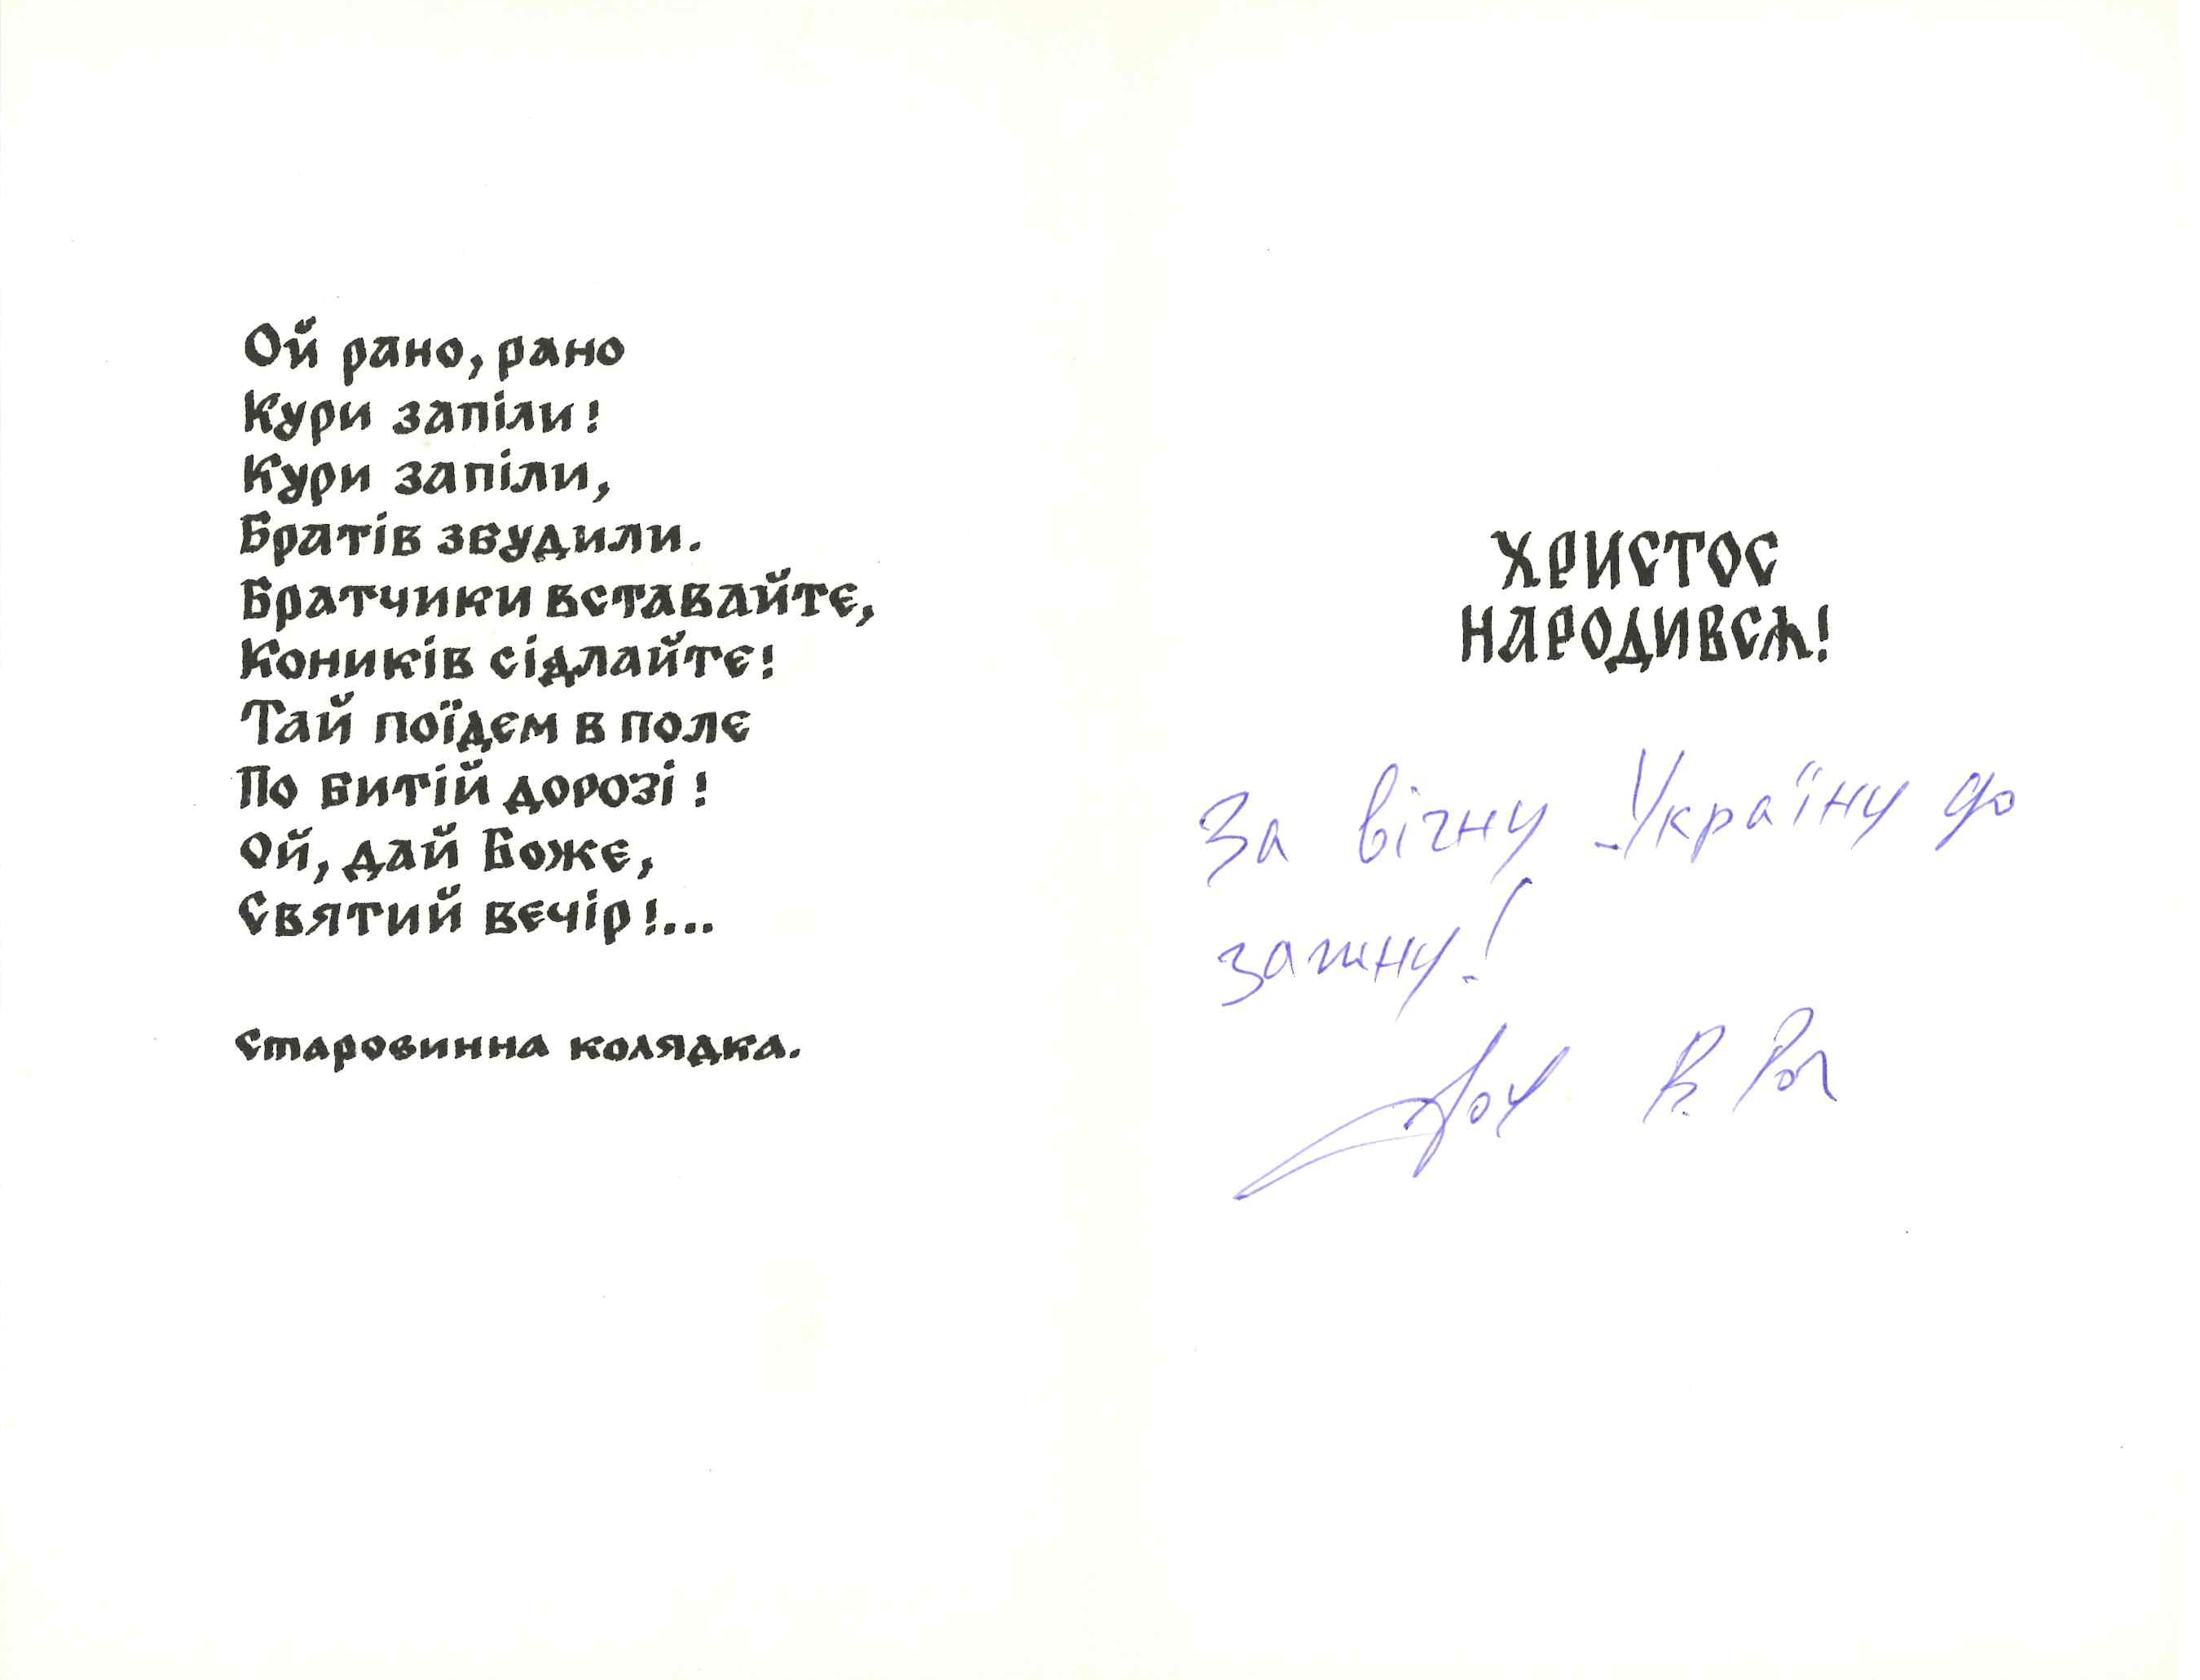 Ой рано, рано
Кури запіли!
Кури запіли,
Братів збудили.
Братчики вставайте,
Коників сідлайте!
Тай поїдем в поле
По битій дорозі!
Ой, дай Боже,
Святий вечір!...
Старовинна колядка.
ХРИСТОС
НАРОДИВСЯ!
За вічну Україну до
загину!
В.